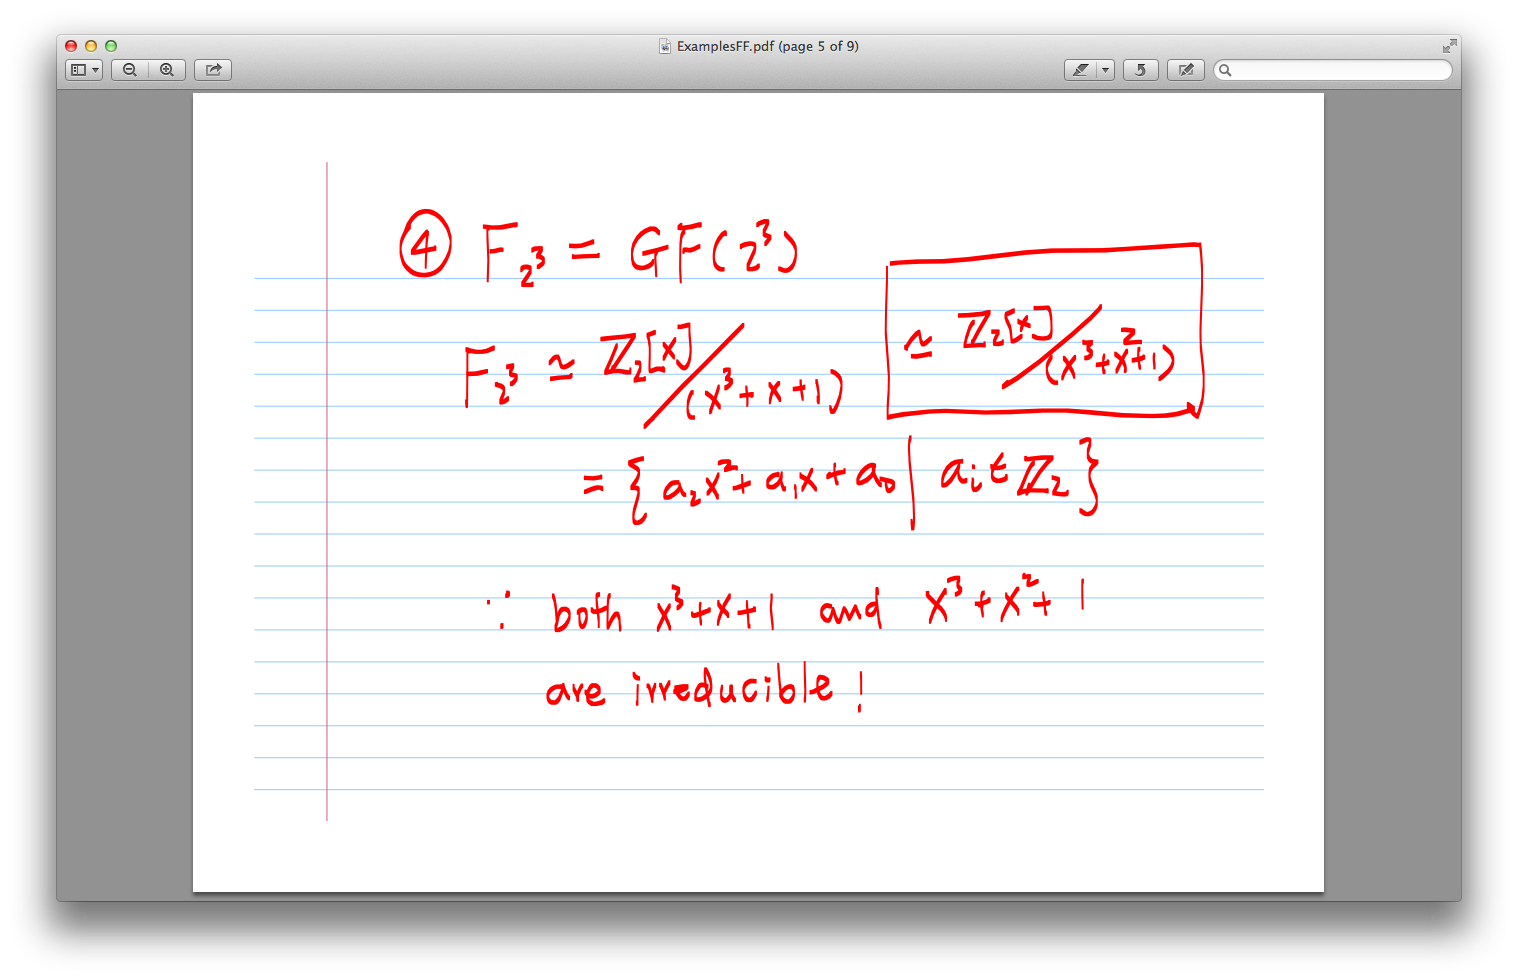 ExamplesFF.pdf (page 5 of 9)
④ F_{2^3} = GF(2^3)
F_{2^3} ≃ ℤ_2[x]/(x^3+x+1)
≃ ℤ_2[x]/(x^3+x^2+1)
= {a_2x^2+a_1x+a_0 | a_i ∈ ℤ_2}
∵ both x^3+x+1 and x^3+x^2+1
are irreducible!